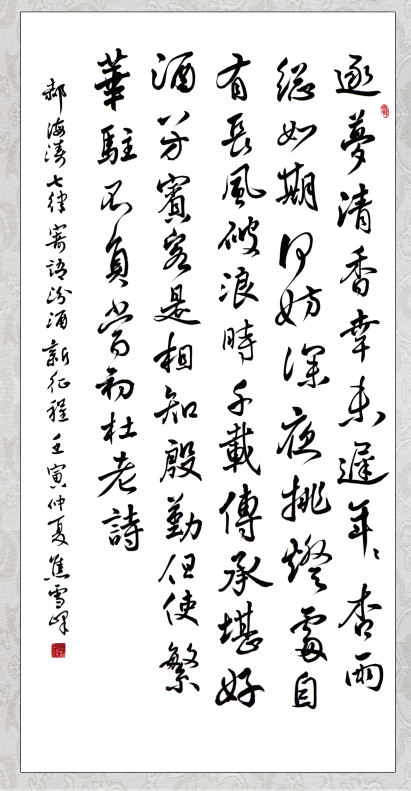 逐夢清香幸未遲年〻杏雨
總如期何妨深夜挑燈處自
有長風破浪時千載傳承堪好
酒八方賓客是相知殷勤但使繁
華駐不負當初杜老詩
郝海濤七律寄語汾酒新征程壬寅仲夏焦雪峰